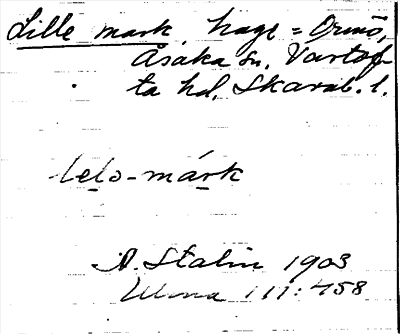 Lille mark, hage = Ormö,
Åsaka sn, Vartof-
ta hd, Skarab. l.
lelo-márk
A. Stalin 1903
111:458